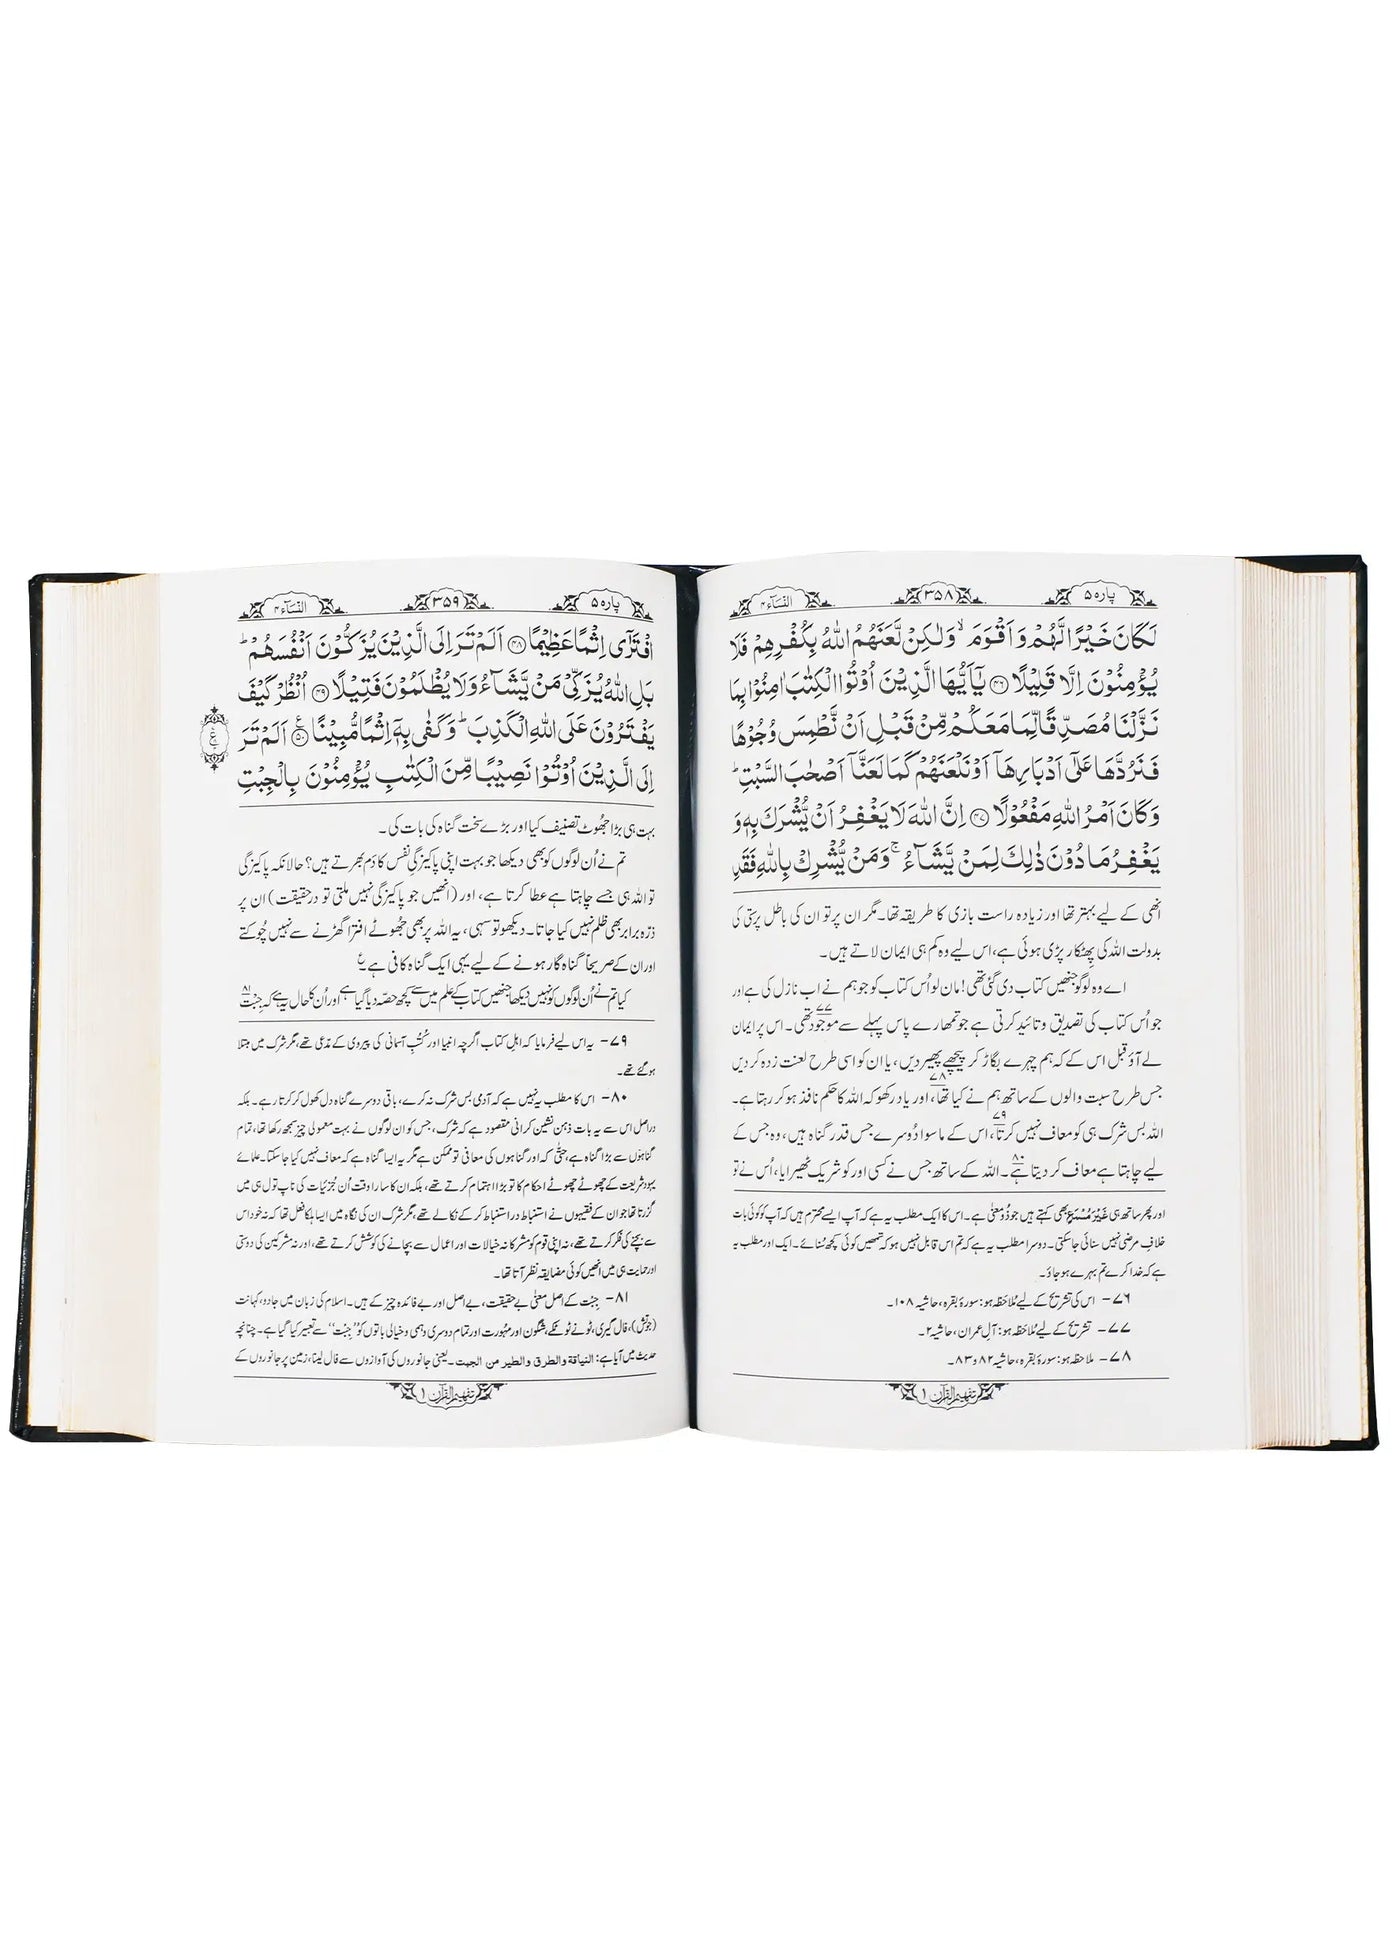 پارہ ۵
۳۵۸
النسآء ۴
لَكَانَ خَيْرًا لَّهُمْ وَاَقْوَمَ ۙ وَلٰكِنْ لَّعَنَهُمُ اللّٰهُ بِكُفْرِهِمْ فَلَا
يُؤْمِنُوْنَ اِلَّا قَلِيْلًا ﴿۴۶﴾ يٰۤاَيُّهَا الَّذِيْنَ اُوْتُوا الْكِتٰبَ اٰمِنُوْا بِمَا
نَزَّلْنَا مُصَدِّقًا لِّمَا مَعَكُمْ مِّنْ قَبْلِ اَنْ نَّطْمِسَ وُجُوْهًا
فَنَرُدَّهَا عَلٰۤى اَدْبَارِهَاۤ اَوْ نَلْعَنَهُمْ كَمَا لَعَنَّاۤ اَصْحٰبَ السَّبْتِ ؕ
وَكَانَ اَمْرُ اللّٰهِ مَفْعُوْلًا ﴿۴۷﴾ اِنَّ اللّٰهَ لَا يَغْفِرُ اَنْ يُّشْرَكَ بِهٖ وَ
يَغْفِرُ مَا دُوْنَ ذٰلِكَ لِمَنْ يَّشَآءُ ۚ وَمَنْ يُّشْرِكْ بِاللّٰهِ فَقَدِ
انھی کے لیے بہتر تھا اور زیادہ راست بازی کا طریقہ تھا۔ مگر ان پر تو ان کی باطل پرستی کی
بدولت اللہ کی پھٹکار پڑی ہوئی ہے، اس لیے وہ کم ہی ایمان لاتے ہیں۔
اے وہ لوگو جنھیں کتاب دی گئی تھی! مان لو اُس کتاب کو جو ہم نے اب نازل کی ہے اور
جو اُس کتاب کی تصدیق و تائید کرتی ہے جو تمھارے پاس پہلے سے موجود تھی۷۷۔ اس پر ایمان
لے آؤ قبل اس کے کہ ہم چہرے بگاڑ کر پیچھے پھیر دیں، یا ان کو اسی طرح لعنت زدہ کر دیں
جس طرح سبت والوں کے ساتھ ہم نے کیا تھا۷۸، اور یاد رکھو کہ اللہ کا حکم نافذ ہو کر رہتا ہے۔
اللہ بس شرک ہی کو معاف نہیں کرتا۷۹، اس کے ماسوا دُوسرے جس قدر گناہ ہیں، وہ جس کے
لیے چاہتا ہے معاف کر دیتا ہے۸۰۔ اللہ کے ساتھ جس نے کسی اور کو شریک ٹھیرایا، اُس نے تو
اور پھر ساتھ ہی غَيْرَ مُسْمَعٍ بھی کہتے ہیں جو ذُو معنٰی ہے۔ اس کا ایک مطلب یہ ہے کہ آپ ایسے محترم ہیں کہ آپ کو کوئی بات
خلافِ مرضی نہیں سنائی جاسکتی۔ دوسرا مطلب یہ ہے کہ تم اس قابل نہیں ہو کہ تمھیں کوئی کچھ سُنائے۔ ایک اور مطلب یہ
ہے کہ خدا کرے تم بہرے ہو جاؤ۔
۷۶ – اس کی تشریح کے لیے مُلاحظہ ہو: سورۂ بقرہ، حاشیہ ۱۰۸۔
۷۷ – تشریح کے لیے مُلاحظہ ہو: آلِ عمران، حاشیہ ۲۔
۷۸ – ملاحظہ ہو: سورۂ بقرہ، حاشیہ ۸۲ و ۸۳۔
تفہیم القرآن ۱
پارہ ۵
۳۵۹
النسآء ۴
افْتَرٰۤى اِثْمًا عَظِيْمًا ﴿۴۸﴾ اَلَمْ تَرَ اِلَى الَّذِيْنَ يُزَكُّوْنَ اَنْفُسَهُمْ ؕ
بَلِ اللّٰهُ يُزَكِّيْ مَنْ يَّشَآءُ وَلَا يُظْلَمُوْنَ فَتِيْلًا ﴿۴۹﴾ اُنْظُرْ كَيْفَ
يَفْتَرُوْنَ عَلَى اللّٰهِ الْكَذِبَ ؕ وَكَفٰى بِهٖۤ اِثْمًا مُّبِيْنًا ﴿۵۰﴾ ع اَلَمْ تَرَ
اِلَى الَّذِيْنَ اُوْتُوْا نَصِيْبًا مِّنَ الْكِتٰبِ يُؤْمِنُوْنَ بِالْجِبْتِ
بہت ہی بڑا جھُوٹ تصنیف کیا اور بڑے سخت گناہ کی بات کی۔
تم نے اُن لوگوں کو بھی دیکھا جو بہت اپنی پاکیزگیِ نفس کا دَم بھرتے ہیں؟ حالانکہ پاکیزگی
تو اللہ ہی جسے چاہتا ہے عطا کرتا ہے، اور (انھیں جو پاکیزگی نہیں ملتی تو درحقیقت) ان پر
ذرّہ برابر بھی ظلم نہیں کیا جاتا۔ دیکھو تو سہی، یہ اللہ پر بھی جھُوٹے افترا گھڑنے سے نہیں چُوکتے
اور ان کے صریحاً گناہ گار ہونے کے لیے یہی ایک گناہ کافی ہے۔ ع
کیا تم نے اُن لوگوں کو نہیں دیکھا جنھیں کتاب کے علم میں سے کچھ حصّہ دیا گیا ہے اور اُن کا حال یہ ہے کہ جِبْت۸۱
۷۹ – یہ اس لیے فرمایا کہ اہلِ کتاب اگرچہ انبیا اور کُتُبِ آسمانی کی پیروی کے مدّعی تھے، مگر شرک میں مبتلا
ہوگئے تھے۔
۸۰ – اس کا مطلب یہ نہیں ہے کہ آدمی بس شرک نہ کرے، باقی دوسرے گناہ دل کھول کر کرتا رہے۔ بلکہ
دراصل اس سے یہ بات ذہن نشین کرانی مقصود ہے کہ شرک، جس کو ان لوگوں نے بہت معمولی چیز سمجھ رکھا تھا، تمام
گناہوں سے بڑا گناہ ہے، حتّٰی کہ اور گناہوں کی معافی تو ممکن ہے مگر یہ ایسا گناہ ہے کہ معاف نہیں کیا جاسکتا۔ علمائے
یہود شریعت کے چھوٹے چھوٹے احکام کا تو بڑا اہتمام کرتے تھے، بلکہ ان کا سارا وقت اُن جُزئیات کی ناپ تول ہی میں
گزرتا تھا جو ان کے فقیہوں نے استنباط در استنباط کرکے نکالے تھے، مگر شرک ان کی نگاہ میں ایسا ہلکا فعل تھا کہ نہ خود اس
سے بچنے کی فکر کرتے تھے، نہ اپنی قوم کو مشرکانہ خیالات اور اعمال سے بچانے کی کوشش کرتے تھے، اور نہ مشرکین کی دوستی
اور حمایت ہی میں انھیں کوئی مضایقہ نظر آتا تھا۔
۸۱ – جِبْت کے اصل معنٰی بے حقیقت، بے اصل اور بے فائدہ چیز کے ہیں۔ اسلام کی زبان میں جادو، کہانت
(جوتش)، فال گیری، ٹونے ٹوٹکے، شگون اور مہُورت اور تمام دوسری وہمی و خیالی باتوں کو ’’جِبْت‘‘ سے تعبیر کیا گیا ہے۔ چنانچہ
حدیث میں آیا ہے: النیاقة والطرق والطیر من الجبت۔ یعنی جانوروں کی آوازوں سے فال لینا، زمین پر جانوروں کے
تفہیم القرآن ۱